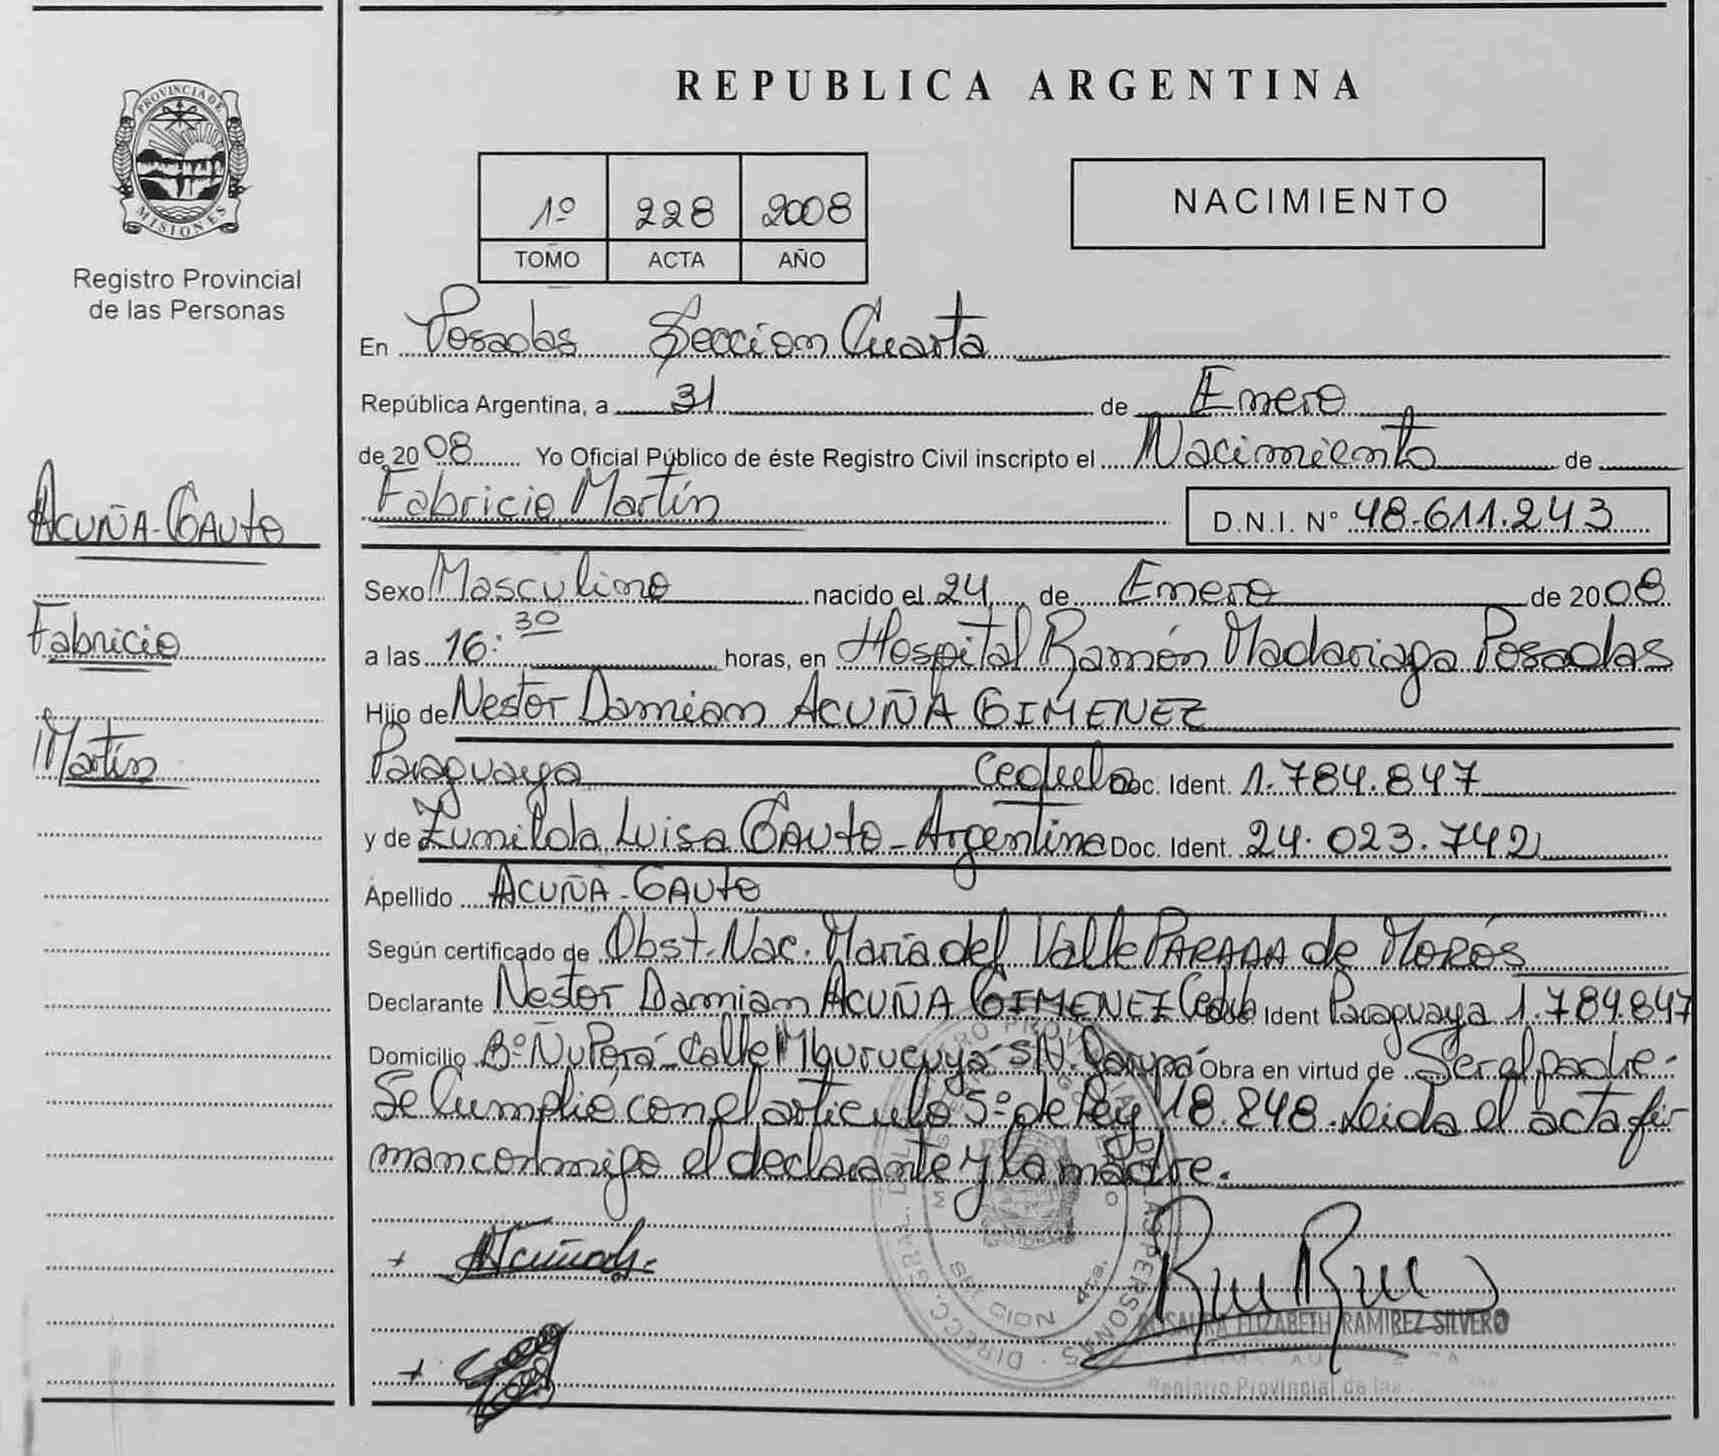 PROVINCIA DE
MISIONES
Registro Provincial
de las Personas
ACUÑA-GAUTO
Fabricio
Martín
REPUBLICA ARGENTINA
1º 228 2008
TOMO ACTA AÑO
NACIMIENTO
En Posadas Seccion Cuarta
República Argentina, a 31 de Enero
de 2008 Yo Oficial Público de éste Registro Civil inscripto el Nacimiento de
Fabricio Martín D.N.I. Nº 48-611.243
Sexo Masculino nacido el 24 de Enero de 2008
a las 16:30 horas, en Hospital Ramón Madariaga Posadas
Hijo de Nestor Damian ACUÑA GIMENEZ
Paraguaya Cedula Doc. Ident. 1.784.847
y de Zunilda Luisa GAUTO - Argentina Doc. Ident. 24.023.742
Apellido ACUÑA-GAUTO
Según certificado de Obst. Nac. María del Valle PARADA de MORÓS
Declarante Nestor Damian ACUÑA GIMENEZ Cedula Doc. Ident Paraguaya 1.784.847
Domicilio Bº Ñu Porá - Calle Mburucuyá S/N. Garupá Obra en virtud de Ser el padre.
Se Cumplió con el articulo 5º de Ley 18.248. Leida el acta fir-
man conmigo el declarante y la madre.
ROSAURA ELIZABETH RAMIREZ SILVERO
Registro Provincial de las